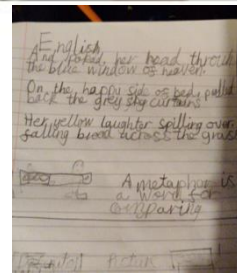 English
And poked her head through
the blue window of heaven.
On the happy side of bed, pulled
back the grey sky curtains
Her yellow laughter spilling over,
falling broad across the grass
A metaphor is
a word for
comparing